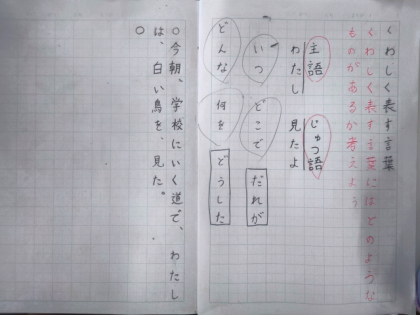 くわしく表す言葉
くわしく表す言葉にはどのような
ものがあるか考えよう
主語 じゅつ語
わたし 見たよ
いつ どこで だれが
どんな 何を どうした
○今朝、学校にいく道で、わたし
は、白い鳥を、見た。
○